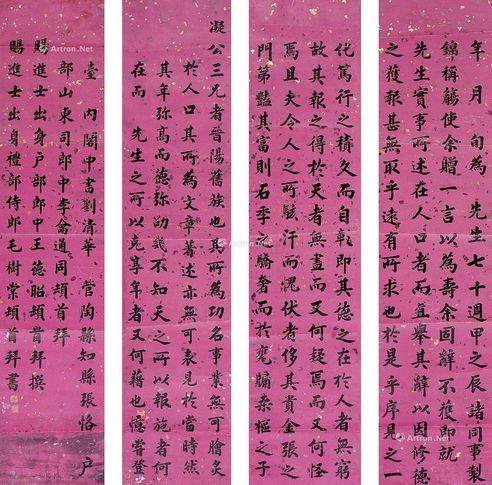 年 月 旬為 先生七十週甲之辰諸同事製
錦稱觴使余贈一言以為壽余固辭不獲即就
先生實事所述在人口者而直舉其辭以因修德
之獲報甚無取乎遠有所求也於是乎序見之一
代篤行之積久而自彰即其德之在於人者無窮
故其報之得於天者無盡而又何疑焉而又何怪
焉且夫令人之所駭汗而愧伏者侈其貴金張之
門第豔其富則石李之驕奢而於甕牖桑樞之子
凝公三兄者晉陽舊族也其所為功名事業無可膾炙
於人口其所為文章著述亦無可表見於當時然
其年彌高而德彌劭幾不知天之所以報施者何
在而 先生之所以克享年者又何藉也憶嘗登
臺 內閣中書劉清華 管陶縣知縣張恪 戶
部山東司郎中李龠通同頓首拜
賜進士出身戶部郎中王德昭頓首拜撰
賜進士出身禮部侍郎毛樹棠頓首拜書
Artron.Net
Artron.Net
Artron.Net
Artron.Net